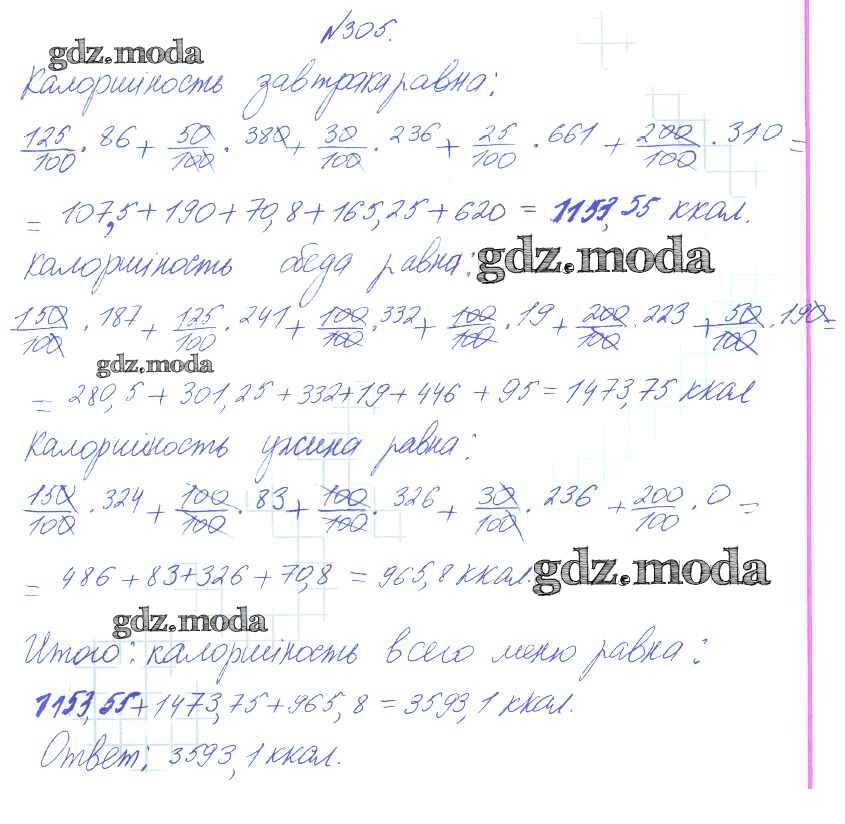 №305.
gdz.moda
Калорийность завтрака равна:
125/100 · 86 + 50/100 · 380 + 30/100 · 236 + 25/100 · 661 + 200/100 · 310 =
= 107,5 + 190 + 70,8 + 165,25 + 620 = 1153,55 ккал.
Калорийность обеда равна: gdz.moda
150/100 · 187 + 125/100 · 241 + 100/100 · 332 + 100/100 · 19 + 200/100 · 223 + 50/100 · 190 =
gdz.moda
= 280,5 + 301,25 + 332 + 19 + 446 + 95 = 1473,75 ккал
Калорийность ужина равна:
150/100 · 324 + 100/100 · 83 + 100/100 · 326 + 30/100 · 236 + 200/100 · 0 =
= 486 + 83 + 326 + 70,8 = 965,8 ккал. gdz.moda
gdz.moda
Итого: калорийность всего меню равна:
1153,55 + 1473,75 + 965,8 = 3593,1 ккал.
Ответ: 3593,1 ккал.